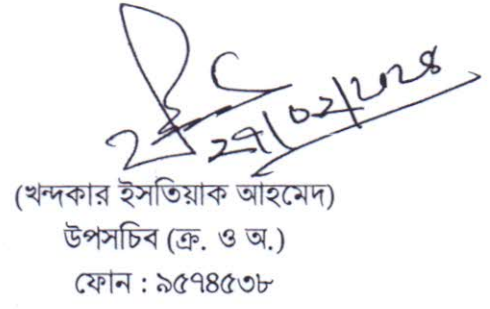 ২৭/০২/২০২৪
(খন্দকার ইসতিয়াক আহমেদ)
উপসচিব (ক্র. ও অ.)
ফোন : ৯৫৭৪৫৩৮